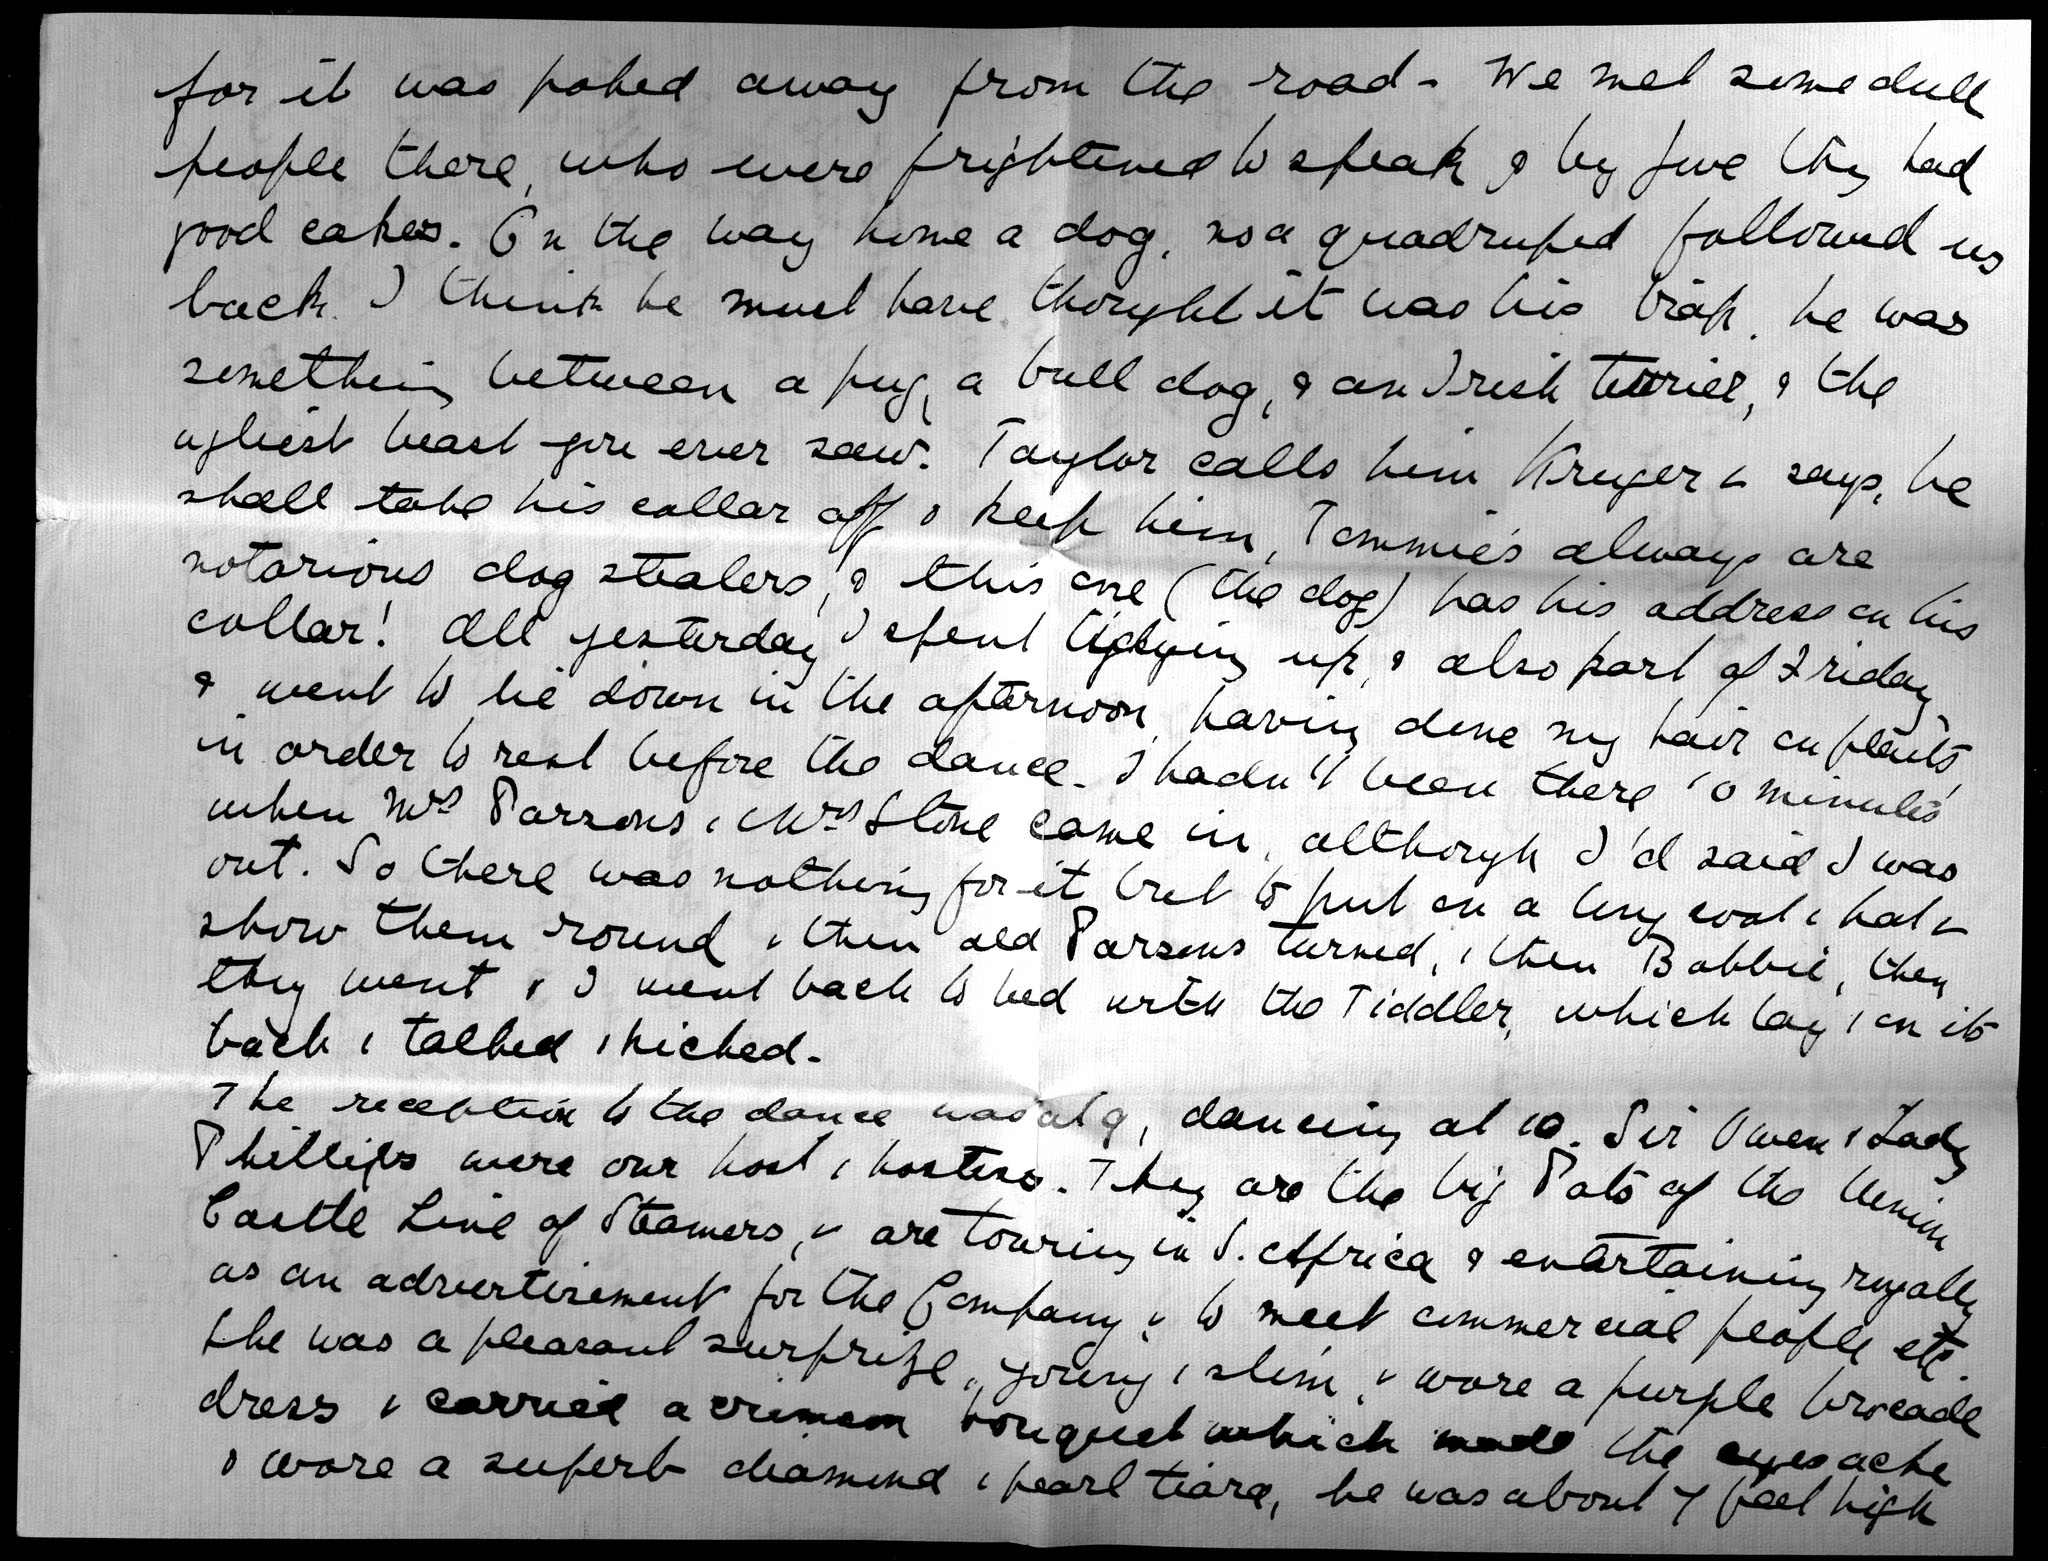 for it was poked away from the road - We met some dull
people there, who were frightened to speak & by Jove they had
good cakes. On the way home a dog, no a quadruped followed us
back. I think he must have thought it was his trap, he was
something between a pug, a bull dog, & an Irish terrier, & the
ugliest beast you ever saw. Taylor calls him Kruger & says, he
shall take his collar off & keep him, Tommie's always are
notorious dog stealers, & this one (the dog) has his address on his
collar! All yesterday I spent tidying up, & also part of Friday,
& went to lie down in the afternoon, having done my hair in plaits,
in order to rest before the dance. I hadn't been there 10 minutes
when Mrs Parsons & Mrs Stone came in, although I'd said I was
out. So there was nothing for it but to put on a long coat & hat &
show them round & then old Parsons turned, & then Bobbie, then
they went & I went back to bed with the Tiddler, which lay on its
back & talked & kicked.
The reception to the dance was at 9, dancing at 10. Sir Owen & Lady
Phillips were our host & hostess. They are the big Pots of the Union
Castle Line of Steamers, & are touring in S. Africa & entertaining royally
as an advertisement for the Company, & to meet commercial people etc.
She was a pleasant surprize, young & slim, & wore a purple brocade
dress & carried a crimson bouquet which made the eyes ache
& wore a superb diamond & pearl tiara, he was about 7 feet high